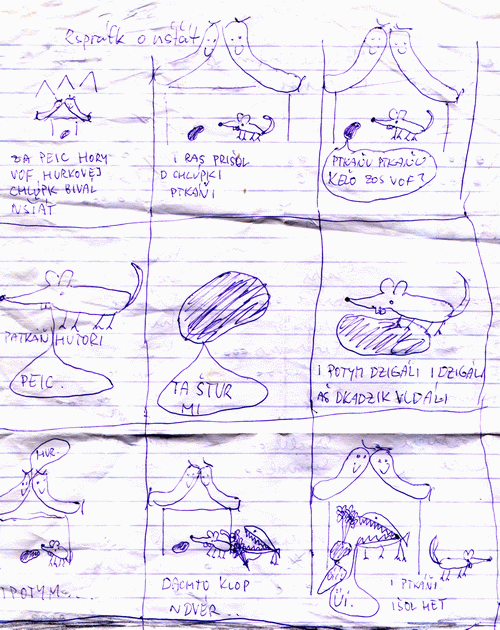 o nšiat
ZA PEIC HORY
VOF HURKOVEJ
CHLÚPK BIVAL
NŠIAT
I RAS PRIŠOL
D CHLÚPKI
PTKAŇI
PTKAŇU PTKAŇU
KELO ZOS VOF?
PATKAŇ HUTORI
PEIC.
TA ŠTUR
MI
I POTYM DZIGALI I DZIGALI
AŠ DKADZIK VLDALI
HUR.
I POTYM...
DACHTO KLOP
NDVER..
ÚI.
I PTKAŇI
IŠOL HET